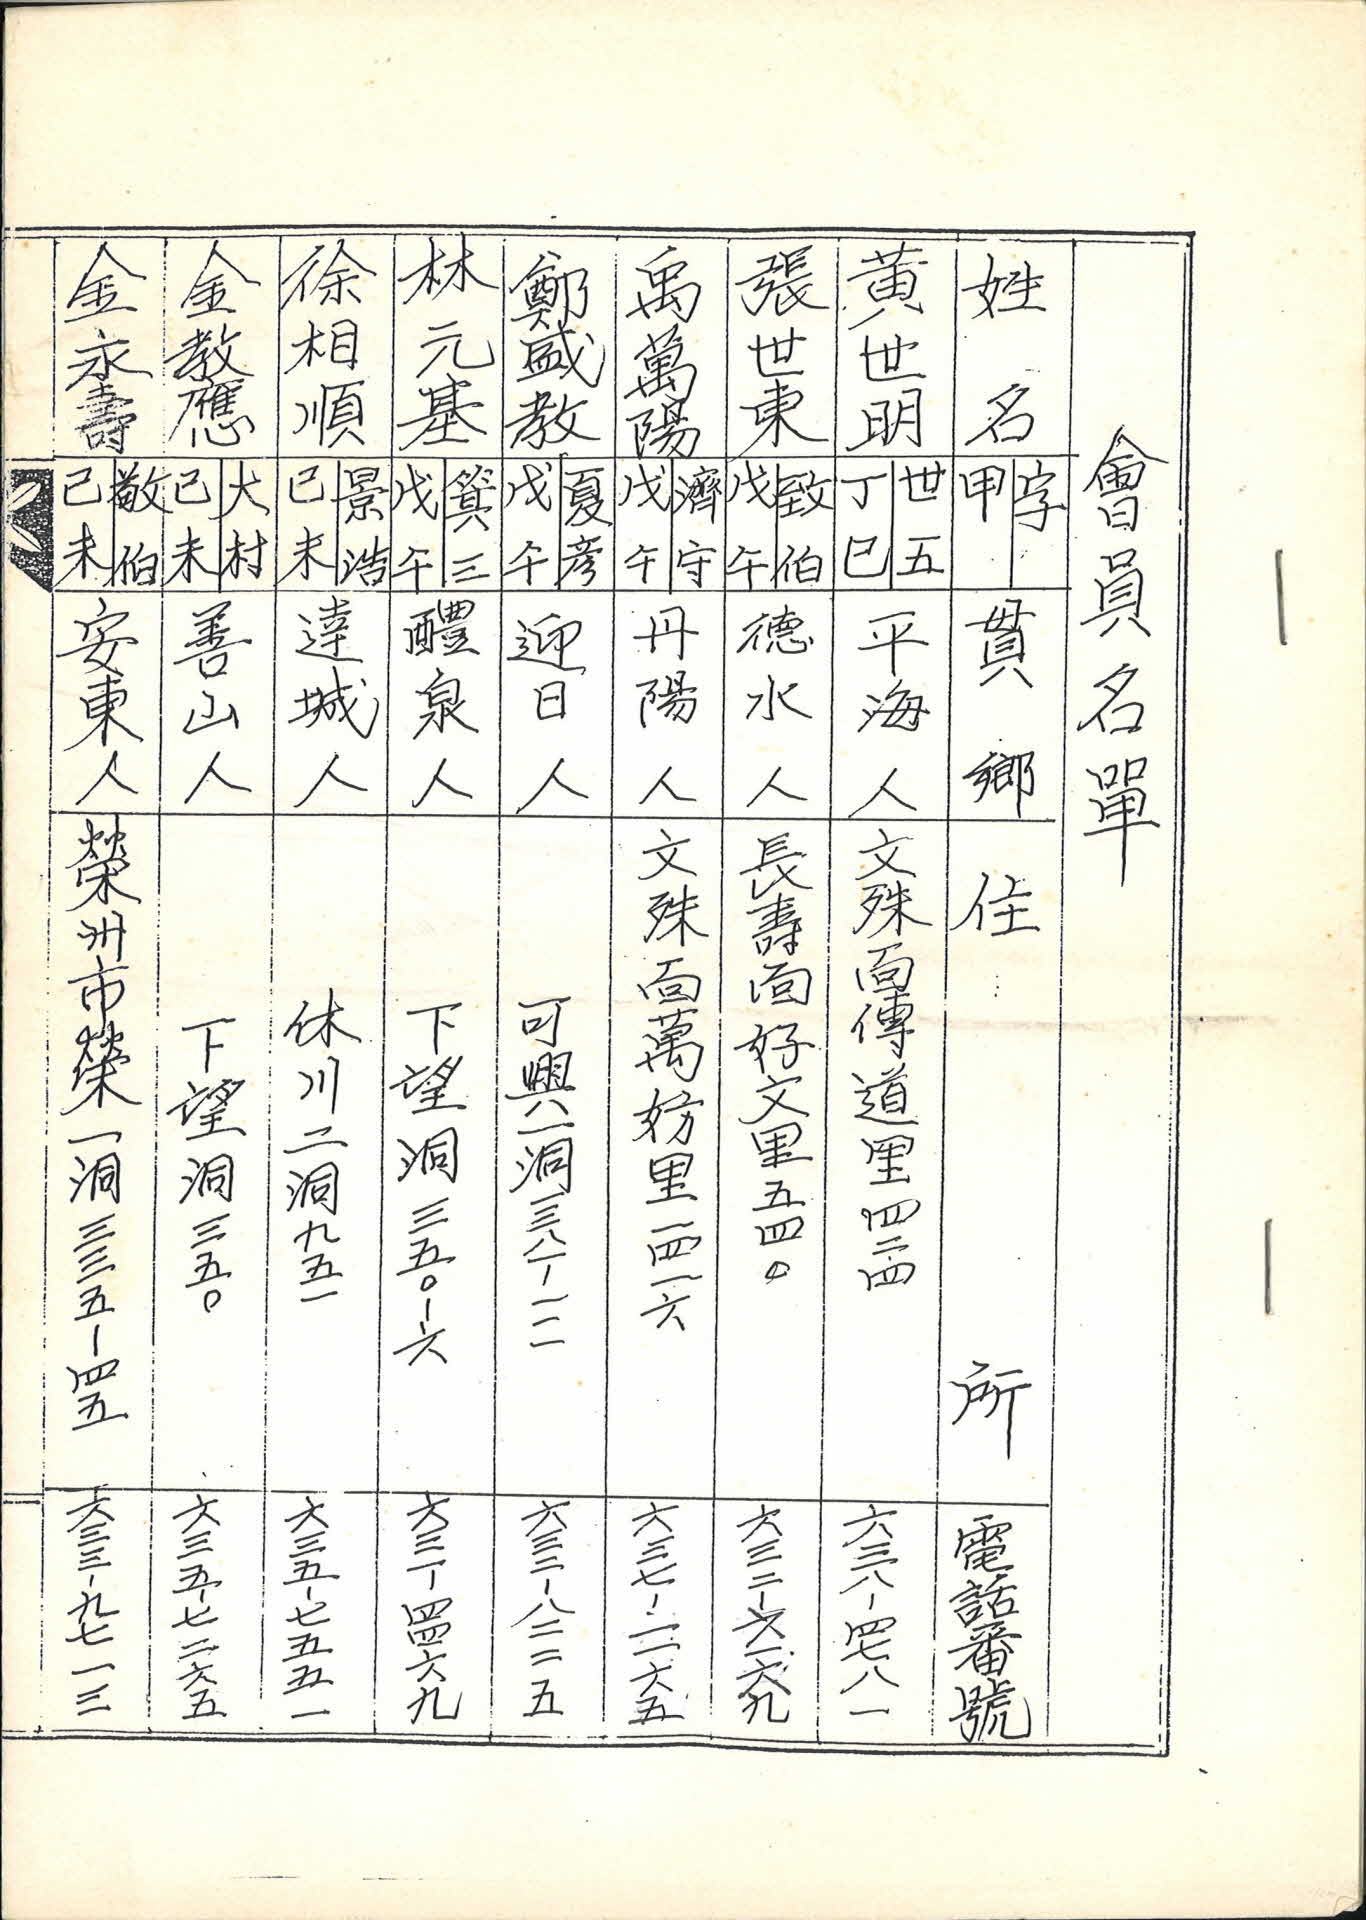 會員名單
姓名 字 甲 貫鄉 住所 電話番號
黃世明 世五 丁巳 平海人 文殊面傳道里四二四 六三八-四七八一
張世東 致伯 戊午 德水人 長壽面好文里五四〇 六三二-六一六九
禹萬陽 濟守 戊午 丹陽人 文殊面萬妨里一四一六 六三七-二一六五
鄭盛教 夏彦 戊午 迎日人 可興二洞三八一-一二 六三二-八二二五
林元基 箕三 戊午 醴泉人 下望洞三五〇-六 六三一-四四六九
徐相順 景浩 己未 達城人 休川二洞九五一 六三五-七五五一
金教應 大村 己未 善山人 下望洞三五〇 六三五-七二六五
金永壽 敬伯 己未 安東人 榮州市榮一洞三三五-四五 六三三-九七一三